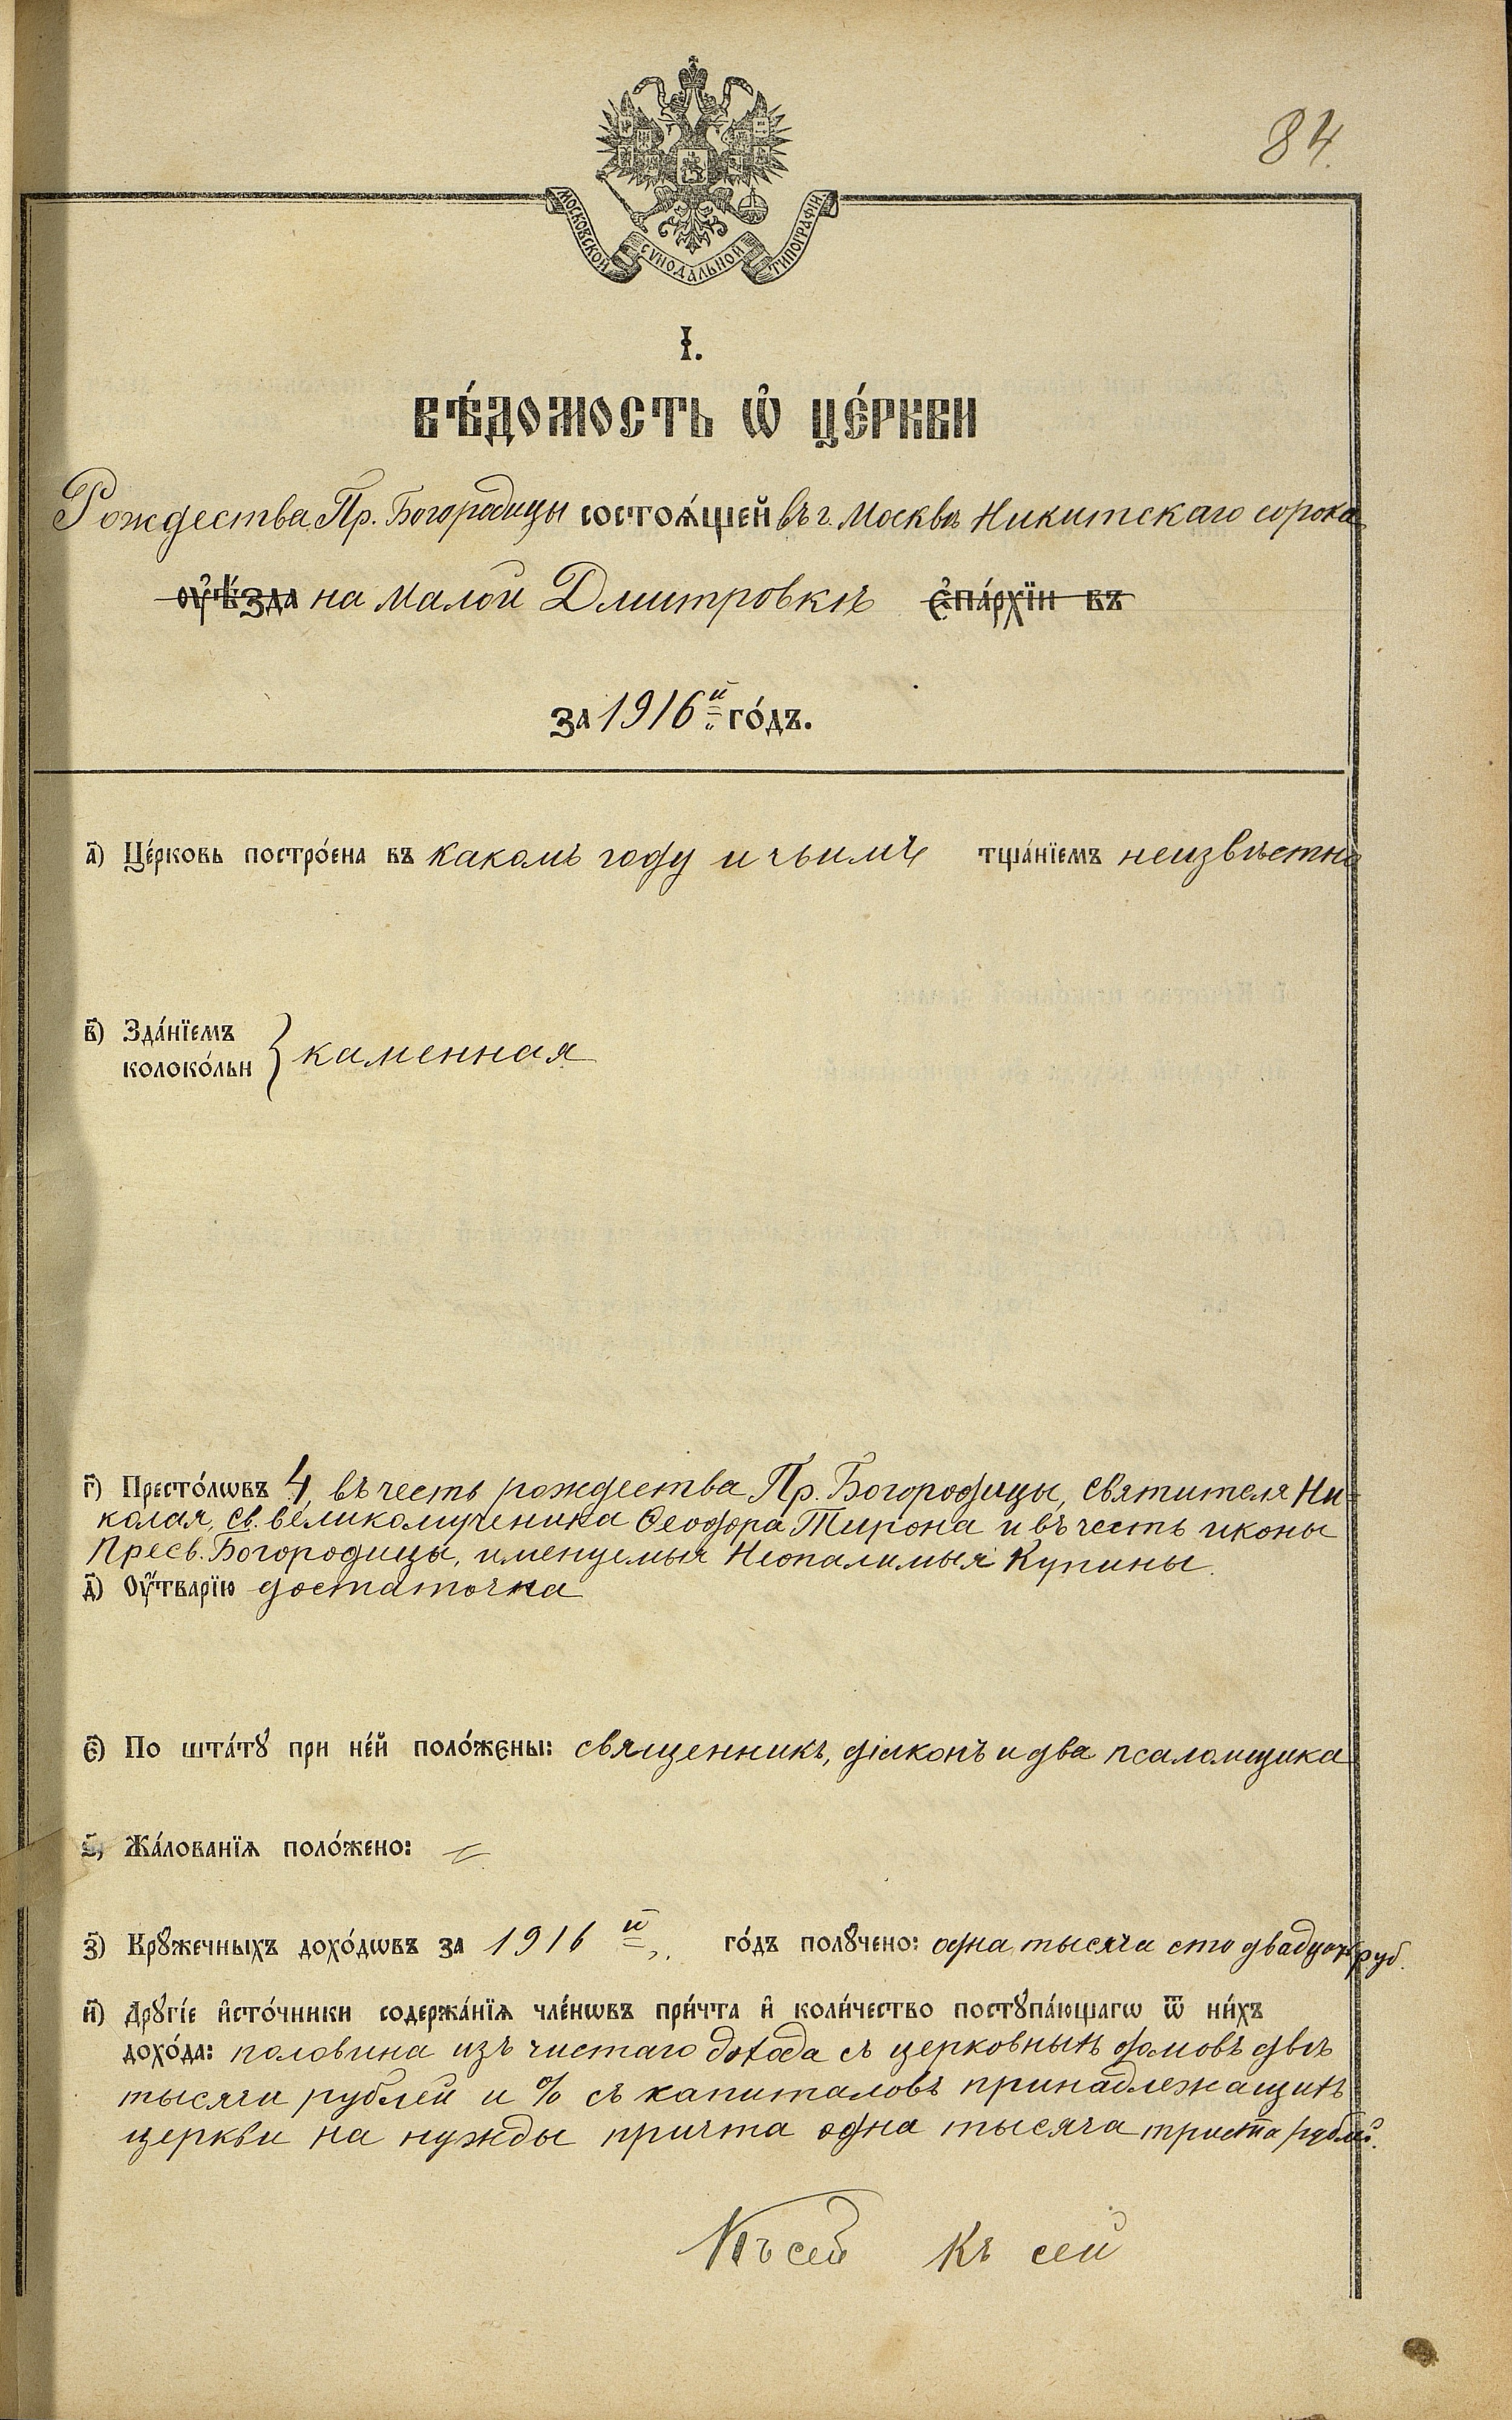 84.
МОСКОВСКОЙ СѴНОДАЛЬНОЙ ТИПОГРАФІИ
І.
ВѢ́ДОМОСТЬ Ѡ҆ ЦЕ́РКВИ
Рождества Пр. Богородицы состоѧ́щей въ г. Москвѣ Никитскаго сорока
ᲂу҆ѣ́зда на Малой Дмитровкѣ є҆па́рхїи въ
за 1916й го́дъ.
а҃) Це́рковь постро́ена въ какомъ году и чьимъ тща́нїемъ неизвѣстно
в҃) Зда́нїемъ
колоко́льн } каменная
г҃) Престо́лѡвъ 4, въ честь рождества Пр. Богородицы, святителя Ни=
колая, св. великомученика Ѳеодора Тирона и въ честь иконы
Пресв. Богородицы, именуемыя Неопалимыя Купины.
д҃) Оу҆́тварїю достаточна
є҃) По шта́тꙋ при не́й поло́жены: священникъ, діаконъ и два псаломщика
ѕ҃) Жа́лованїѧ поло́жено: =
з҃) Крꙋ́жечныхъ дохо́дѡвъ за 1916й го́дъ полꙋ́чено: одна тысяча сто двадцать руб.
и҃) Дрꙋгі́е и҆сто́чники содержа́нїѧ чле́нѡвъ при́чта и҆ коли́чество постꙋпа́ющагѡ ѿ ни́хъ
дохо́да: половина изъ чистаго дохода съ церковныхъ домовъ двѣ
тысячи рублей и % съ капиталовъ принадлежащихъ
церкви на нужды причта одна тысяча триста рублей.
Къ сей Къ сей